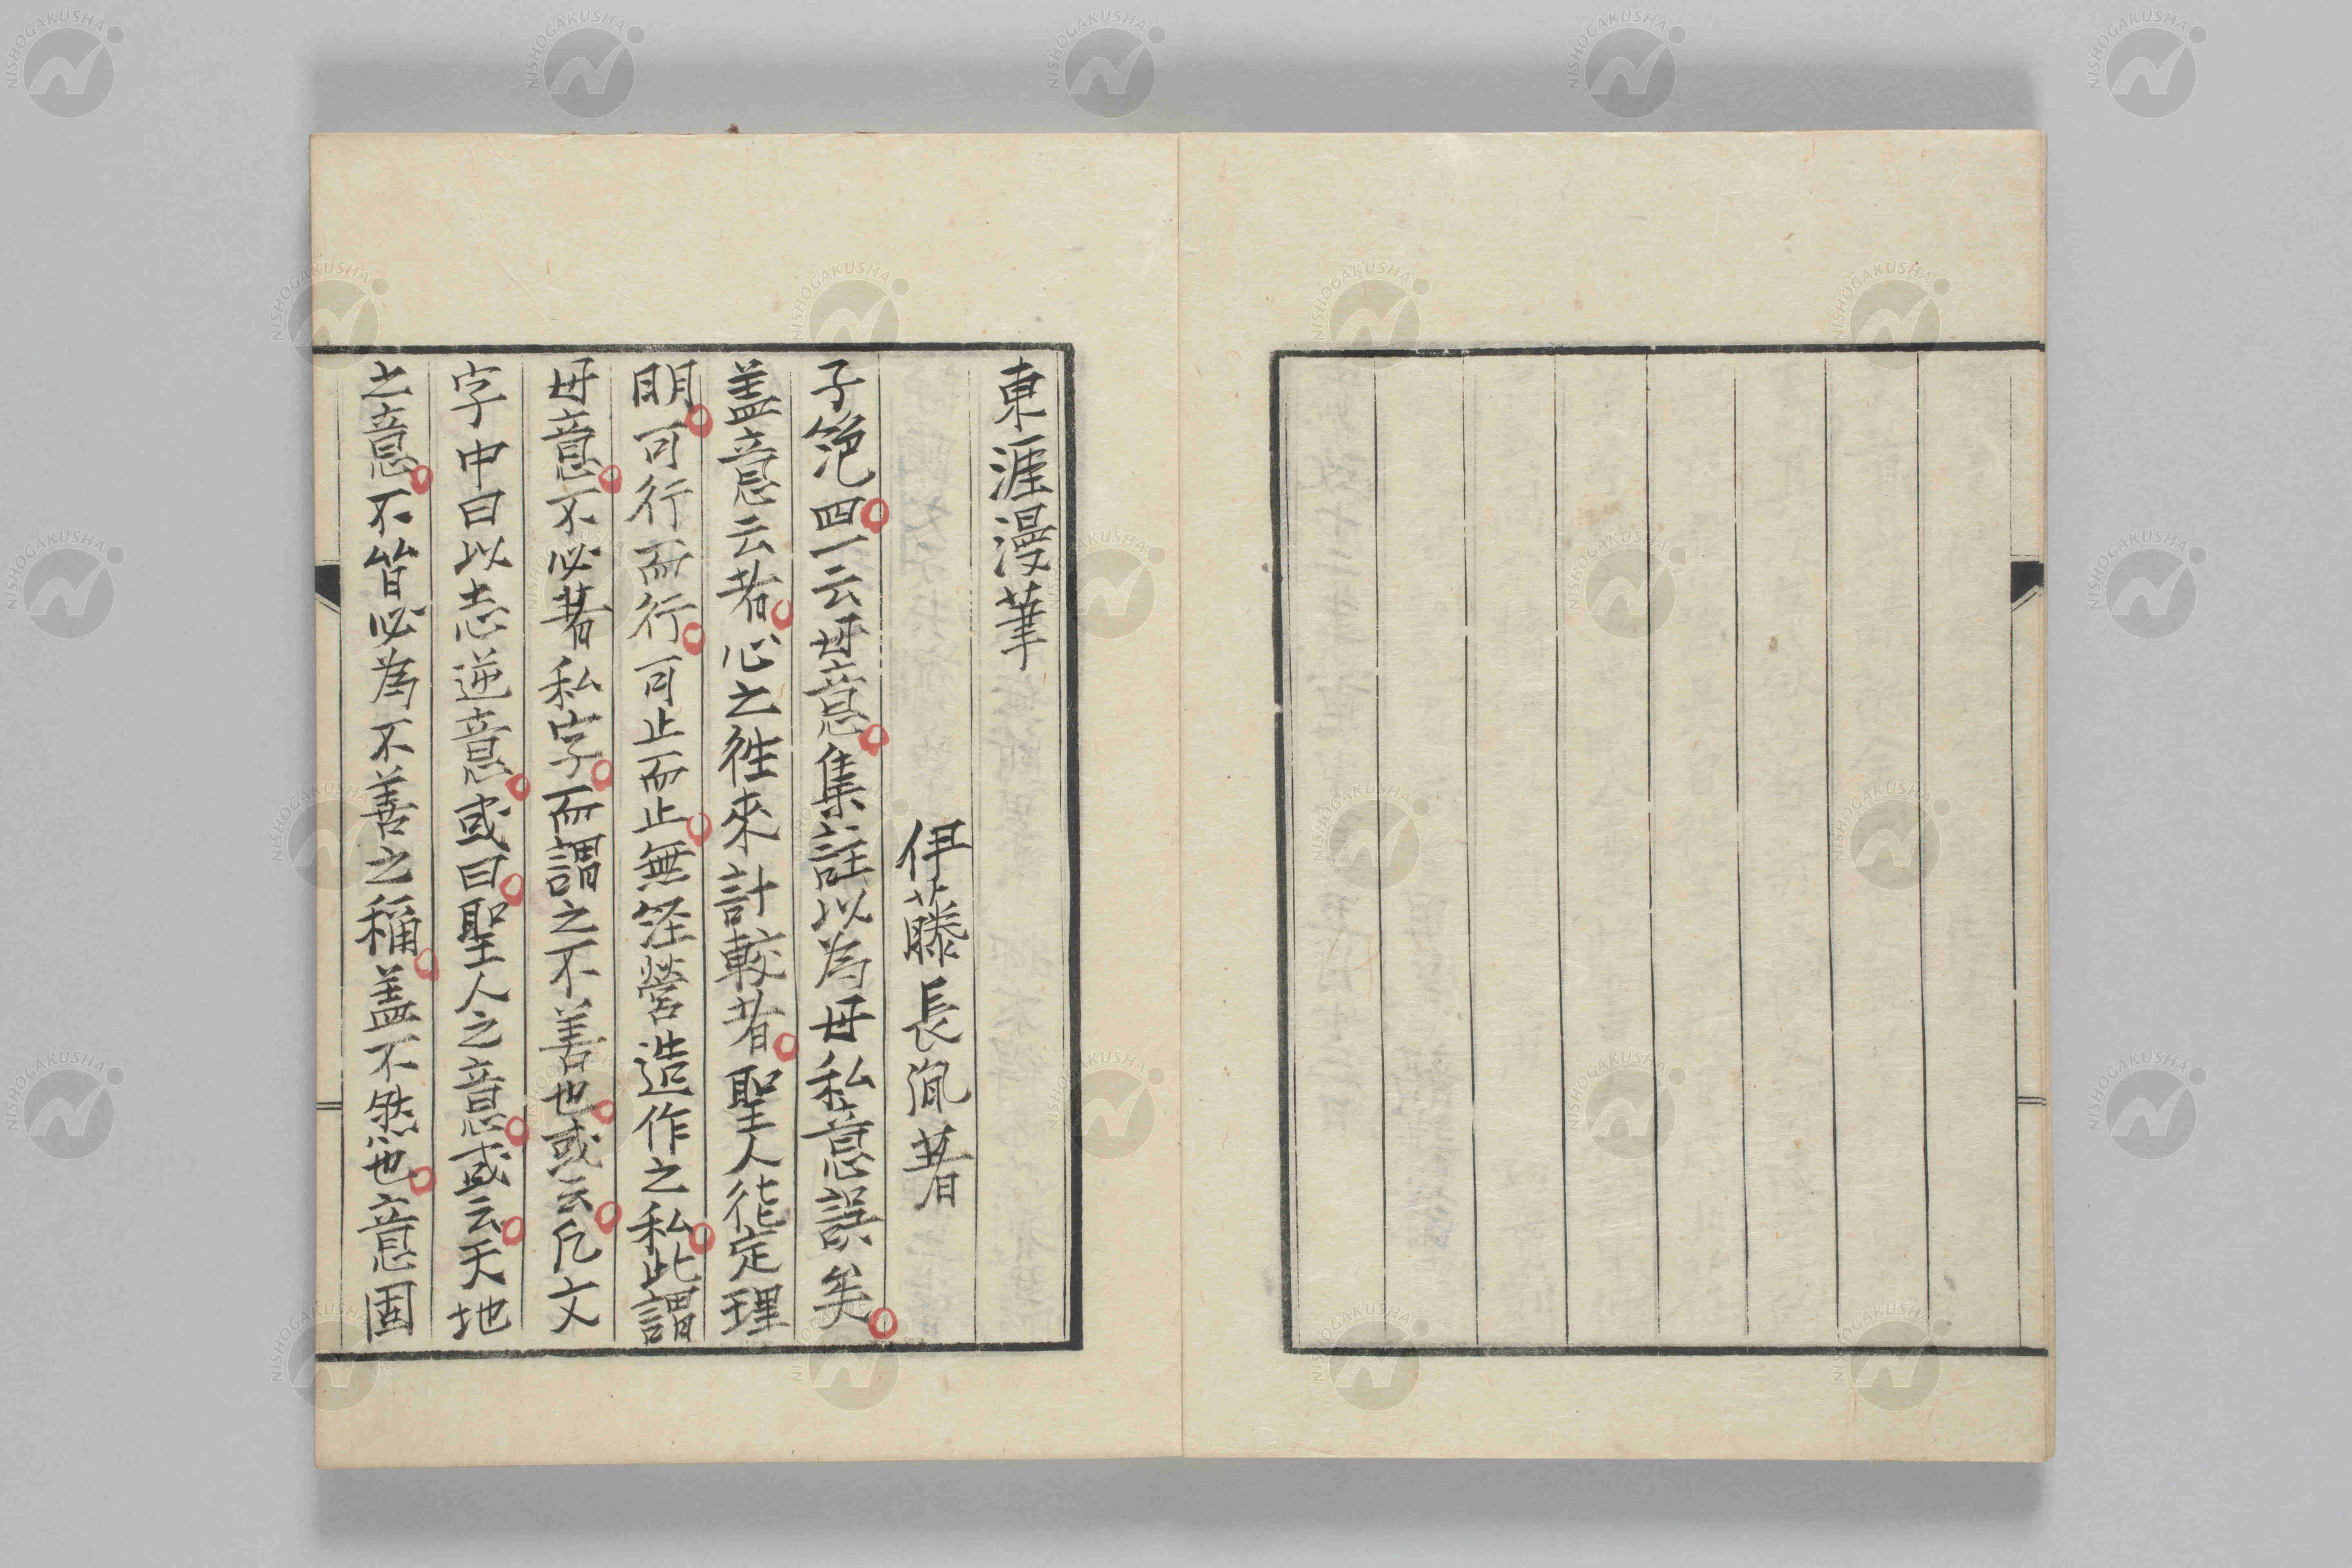 東涯漫筆
伊藤長胤著
子絶四一云毋意集註以為毋私意誤矣
盖意云者心之徃來計較者聖人從定理
明可行而行可止而止無經營造作之私此謂
毋意不必著私字而謂之不善也或云凡文
字中曰以志逆意或曰聖人之意或云天地
之意不皆必為不善之稱盖不然也意固